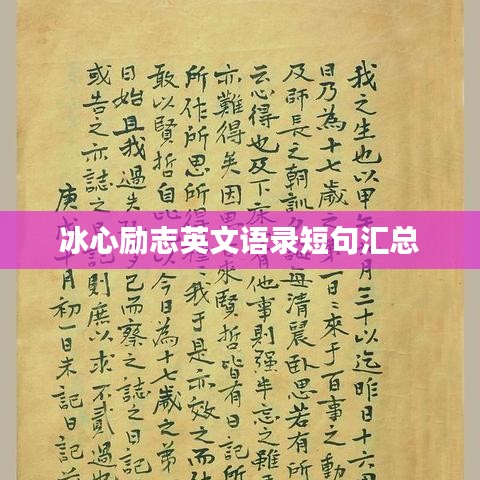 冰心励志英文语录短句汇总
我之生也以甲月三十以迄昨日十六
日乃為十七歲之日來于百事之動
及師長之朝訓每清晨卧思若有所
云心得也及下床他事則強半忘之雖
亦難得矣因思來賢哲皆有日記
所作所思所得我于是亦效之而
敢以賢哲自以今日為十七歲之第
日始且我過失多已而察之誌之日記
或告之亦誌之則庶以求不貳過也
庚戌月初一日未記日記前